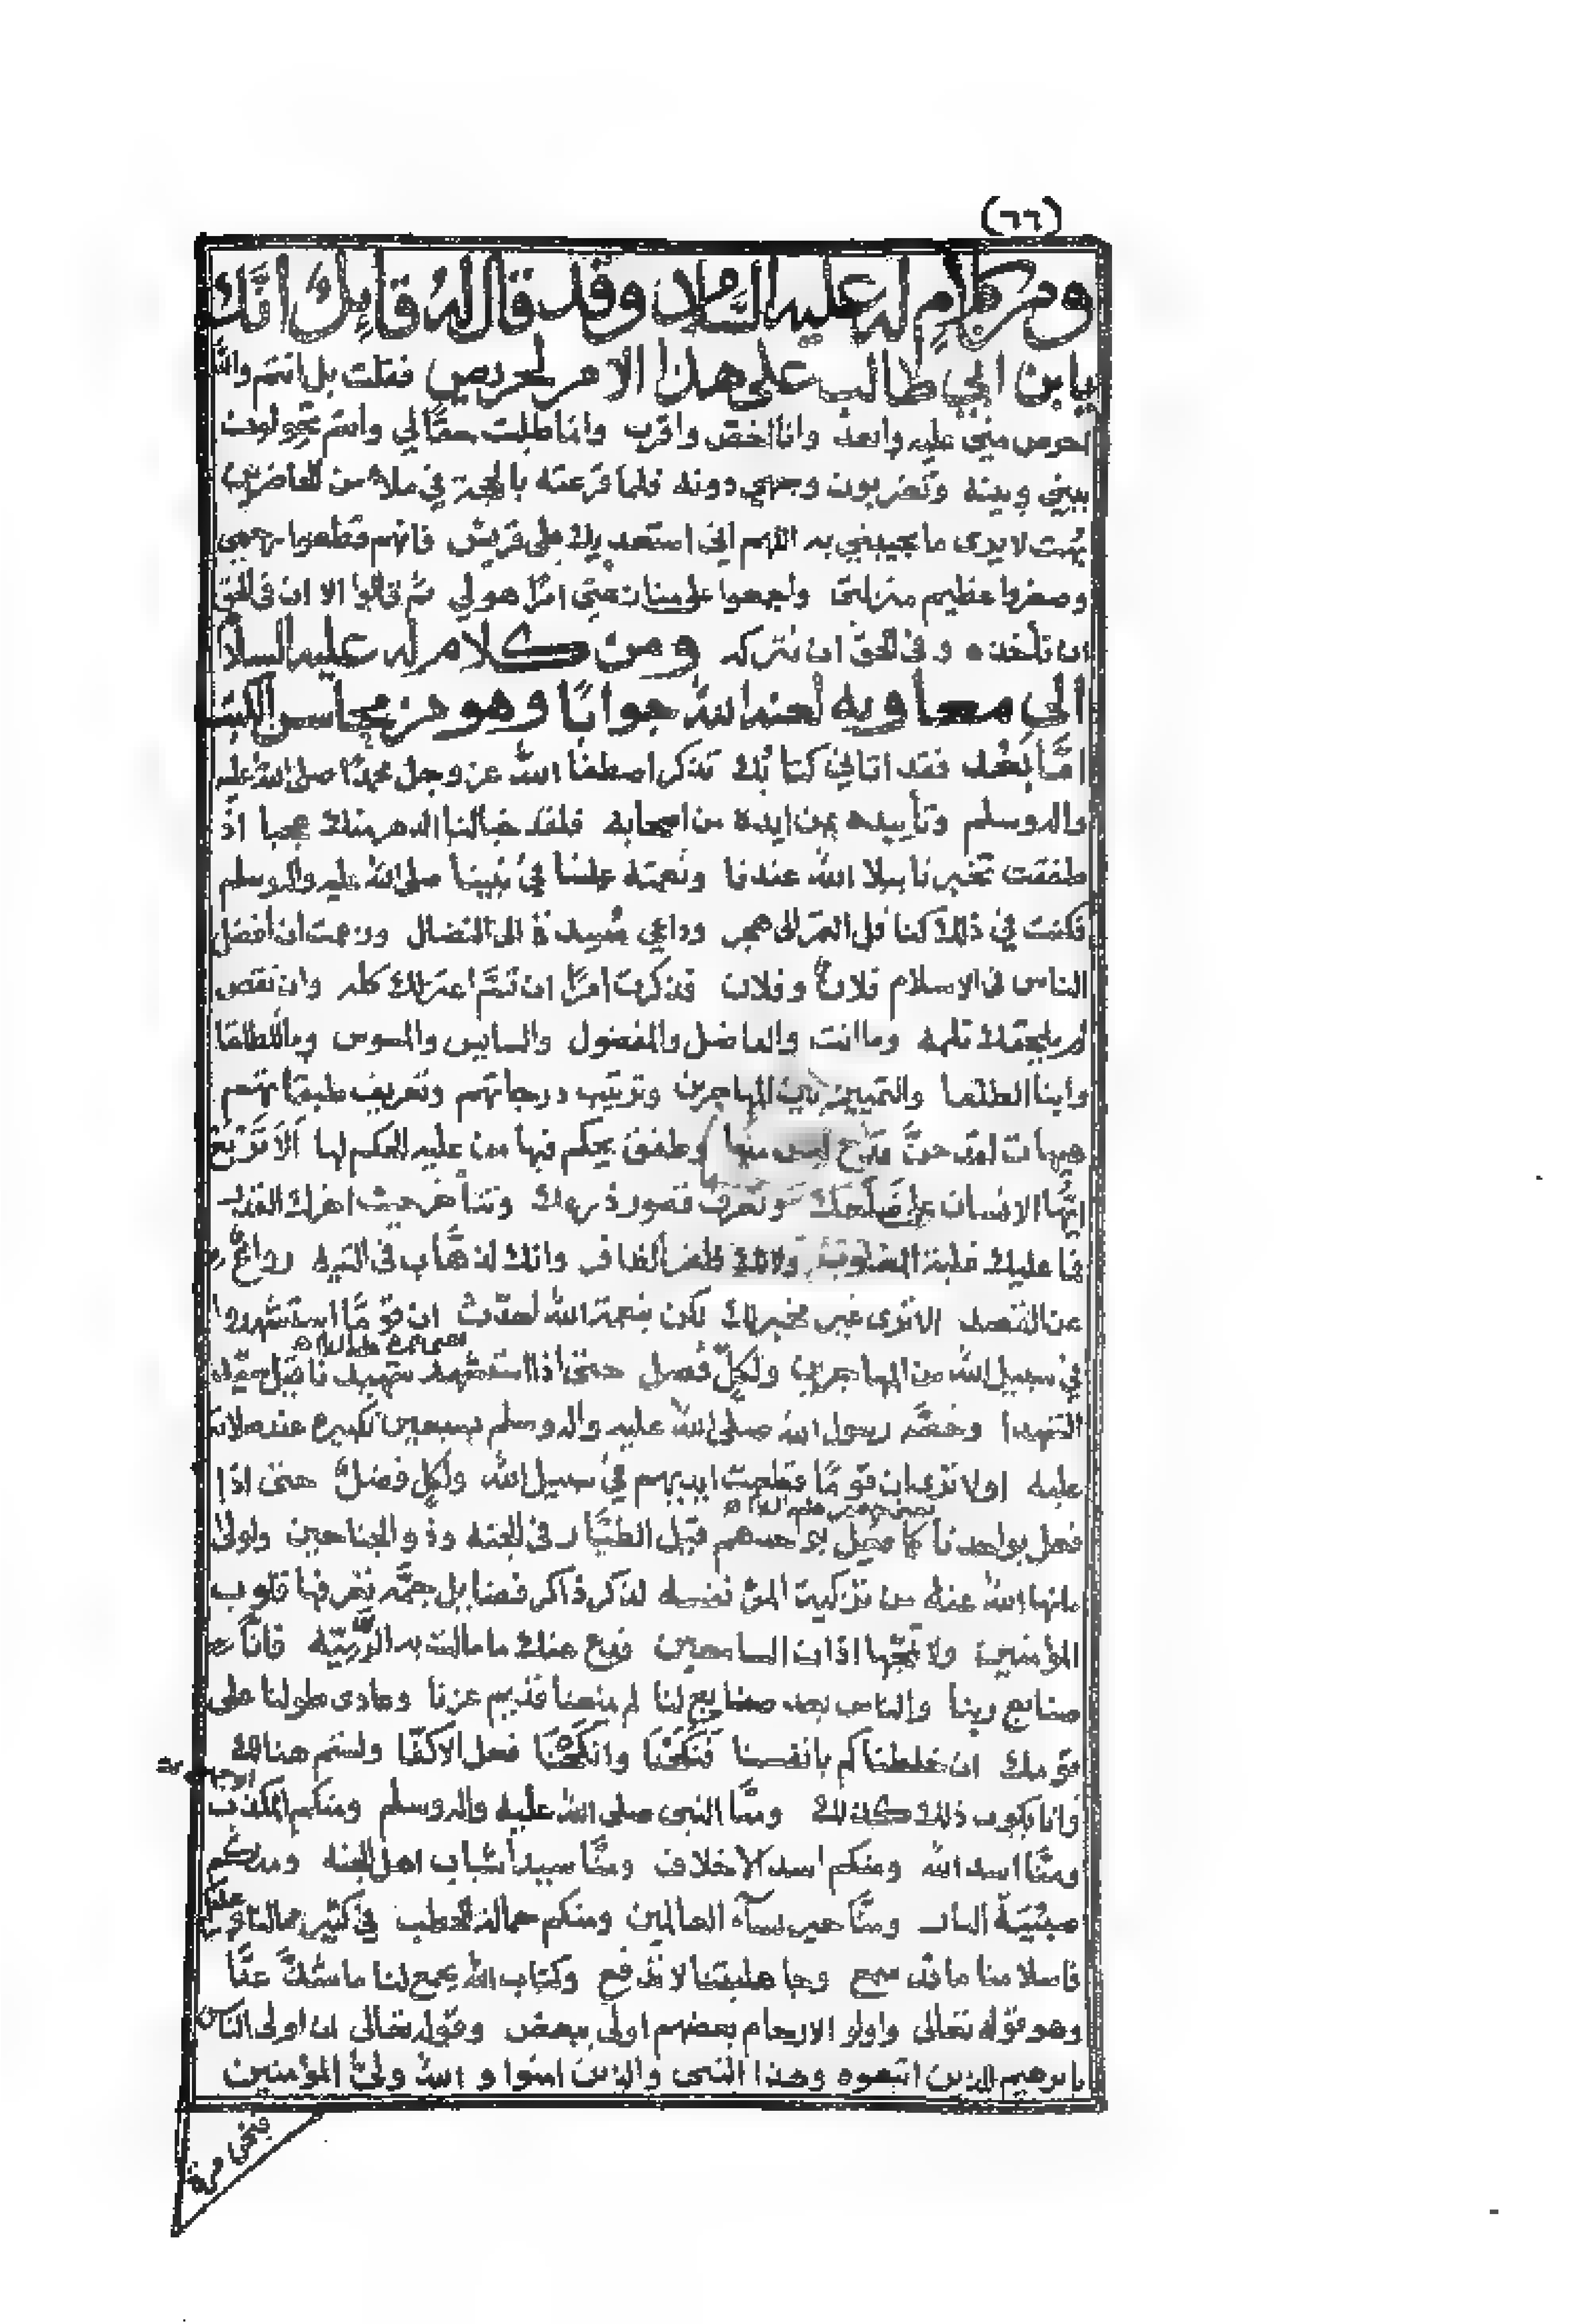 (٦٦)
ومن كلام له عليه السلام وقد قال له قائل انك
يا بن ابي طالب على هذا الامر لحريص فقلت بل انتم والله
احرص مني عليه وابعد وانا اخص واقرب وانما طلبت حقا لي وانتم تحولون
بيني وبينه وتضربون وجهي دونه فلما قرعته بالحجة في ملاء من الحاضرين
بهت لا يدري ما يجيبني به اللهم اني استعديك على قريش فانهم قطعوا رحمي
وصغروا عظيم منزلتي واجمعوا على منازعتي امرا هو لي ثم قالوا الا ان في الحق
ان تأخذه وفي الحق ان نتركه ومن كلام له عليه السلام
الى معاوية لعنه الله جوابا وهو من محاسن الكتب
اما بعد فقد اتاني كتابك تذكر اصطفا الله عز وجل محمدا صلى الله عليه
واله وسلم وتأييده بمن ايده من اصحابه فلقد خبا لنا الدهر منك عجبا اذ
طفقت تخبرنا ببلا الله عندنا ونعمته علينا في نبينا صلى الله عليه واله وسلم
فكنت في ذلك كناقل التمر الى هجر وداعي مسدده الى النضال وزعمت ان افضل
الناس في الاسلام فلان وفلان فذكرت امرا ان تم اعتزلك كله وان نقص
لم يلحقك ثلمه وما انت والفاضل والمفضول والسايس والمسوس وما للطلقا
وابنا الطلقا والتمييز بين المهاجرين وترتيب درجاتهم وتعريف طبقاتهم
هيهات لقد حن قدح ليس منها وطفق يحكم فيها من عليه الحكم لها الا تربع
ايها الانسان على ضلعك وتعرف قصور ذرعك وتتأخر حيث اخرك القدر
فما عليك غلبة المغلوب ولا لك ظفر الظافر وانك لذهاب في التيه رواغ
عن القصد الا ترى غير مخبر لك لكن بنعمة الله احدث ان قوما استشهدوا
في سبيل الله من المهاجرين ولكل فضل حتى اذا استشهد شهيدنا قيل سيد
الشهدا وخصه رسول الله صلى الله عليه واله وسلم بسبعين تكبيره عند صلاته
عليه اولا ترى ان قوما قطعت ايديهم في سبيل الله ولكل فضل حتى اذا
فعل بواحدنا كما فعل بواحدهم قيل الطيار في الجنه وذو الجناحين ولولا
ما نها الله عنه من تزكية المرء نفسه لذكر ذاكر فضايل جمه تعرفها قلوب
المؤمنين ولا تمجها اذان السامعين فدع عنك ما مالت به الرميه فانا
صنايع ربنا والناس بعد صنايع لنا لم يمنعنا قديم عزنا وعادي طولنا على
قومك ان خلطناكم بانفسنا فنكحنا وانكحنا فعل الاكفا ولستم هنالك
وانا يكون ذلك كذلك ومنا النبي صلى الله عليه واله وسلم ومنكم المكذب
ومنا اسد الله ومنكم اسد الاحلاف ومنا سيدا شباب اهل الجنه ومنكم
صبية النار ومنا خير نسآء العالمين ومنكم حمالة الحطب في كثير مما لنا وعليكم
فاسلامنا ما قد سمع وجاهليتنا لا تدفع وكتاب الله يجمع لنا ما شذ عنا
وهو قوله تعالى واولو الارحام بعضهم اولى ببعض وقوله تعالى ان اولى الناس
بابرهيم للذين اتبعوه وهذا النبي والذين امنوا والله ولي المؤمنين
فنحن مرة